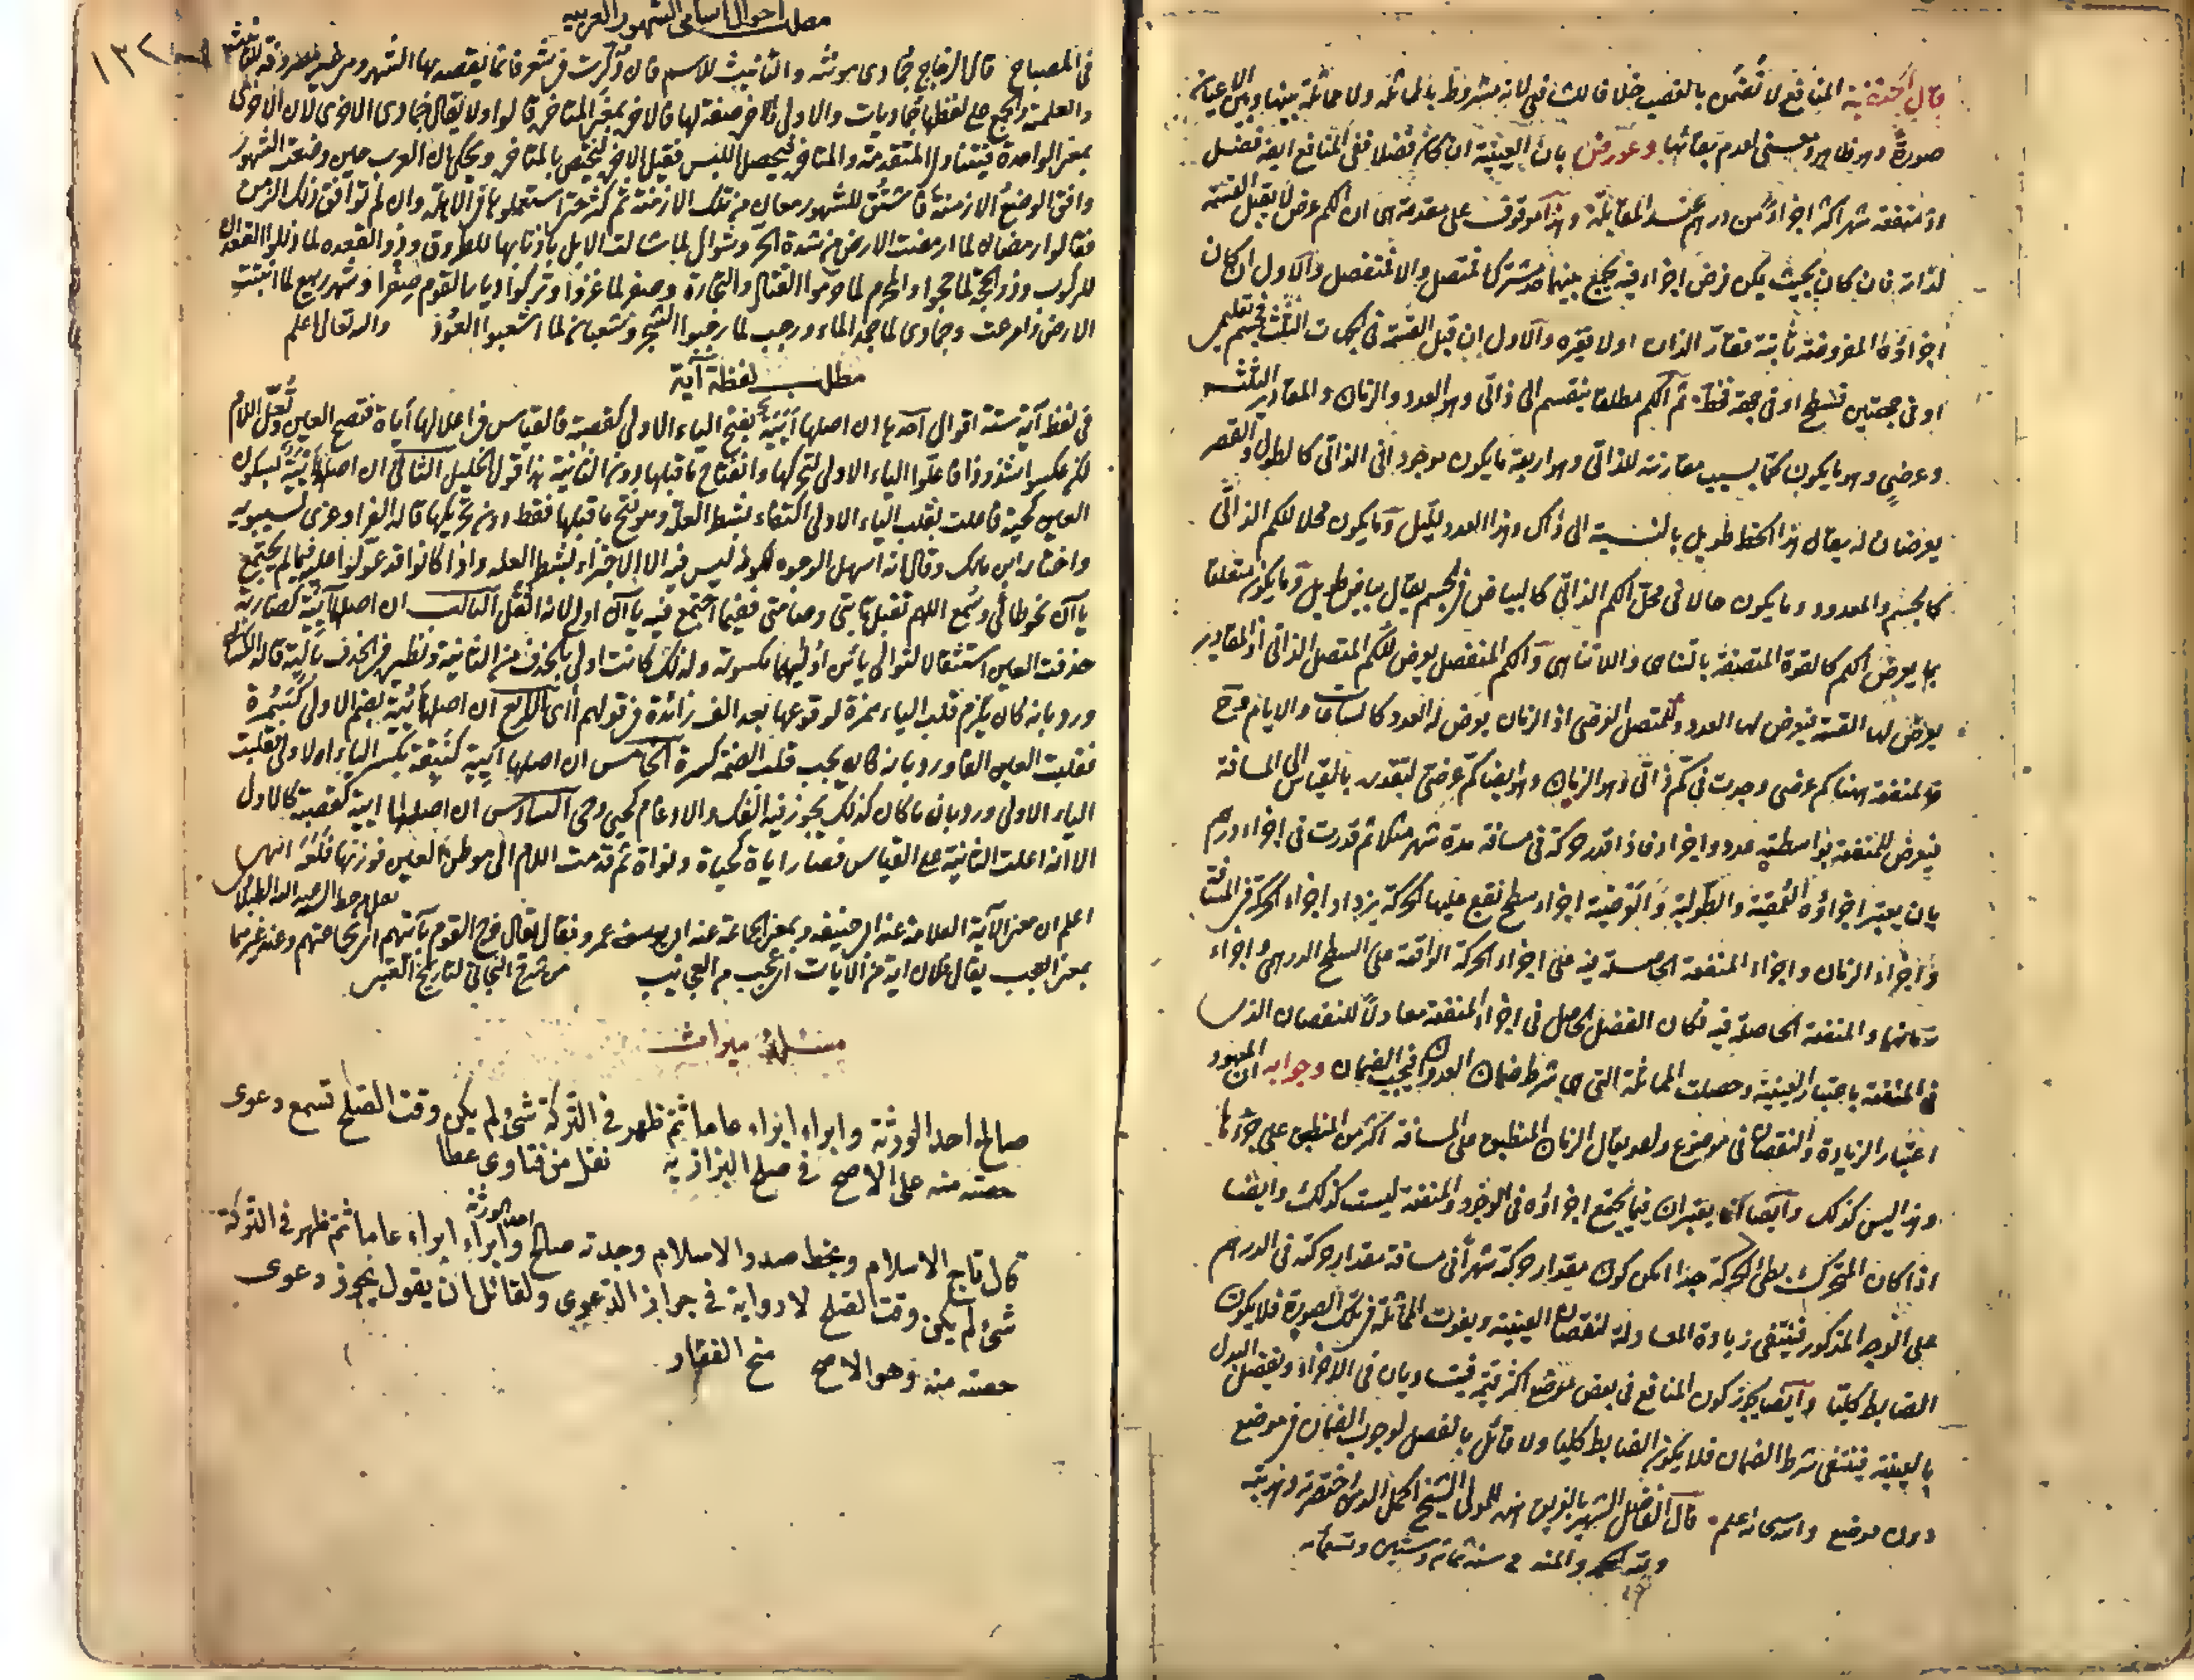 قال الحنفية المنافع لا تضمن بالغصب خلافا للشافعي لانه مشروط بالمماثلة ولا مماثلة بينها وبين الاعيان
صورة وهو ظاهر ومعنى لعدم بقائها وعورض بان العينية ان كانت فضلا ففي المنافع ايضا فضل
اذ منفعة شهر اكثر اجزاء من درهم عند المقابلة وهذا موقوف على مقدمة هي ان الكم عرض لا يقبل القسمة
لذاته فان كان بحيث يمكن فرض اجزاء فيه يجمع بينهما حد مشترك فمتصل والا فمنفصل والاول ان كان
اجزاؤه المفروضة ثابتة فقار الذات اولا فغيره والاول ان قبل القسمة في الجهات الثلث فجسم تعليمي
او في جهتين فسطح او في جهة فخط ثم الكم مطلقا ينقسم الى ذاتي وهو العدد والزمان والمقادير الثلثة
وعرضي وهو ما يكون كما بسبب مقارنته للذاتي وهو اربعة ما يكون موجودا في الذاتي كالطول والقصر
يعرضان له يقال هذا الخط طويل بالنسبة الى ذاك وهذا العدد قليل وما يكون محلا للكم الذاتي
كالجسم والمعدود وما يكون حالا في محل الكم الذاتي كالبياض في الجسم يقال بياض طويل وما يكون متعلقا
بما يعرض الكم كالقوة المتصفة بالتناهي واللاتناهي والكم المنفصل يعرض للكم المتصل الذاتي اذ المقادير
يعرض لها القسمة فيعرض لها العدد وللمتصل العرضي اذ الزمان يعرض له العدد كالساعات والايام فرح
فالمنفعة ههنا كم عرضي وجدت في كم ذاتي وهو الزمان وهو ايضا كم عرضي لتقدره بالقياس الى المسافة
فيعرض للمنفعة بواسطته عدد واجزاء فاذا قدر حركة في مسافة مدة شهر مثلا ثم قدرت في اجزاء درهم
بان يعتبر اجزاؤه العمقية والطولية والعرضية اجزاء سطح تقع عليها الحركة يزداد اجزاء الحركة في المسافة
واجزاء الزمان واجزاء المنفعة الحاصلة فيه على اجزاء الحركة الواقعة على السطح الدرهمي واجزاء
زمانها والمنفعة الحاصلة فيه فكان الفضل الحاصل في اجزاء المنفعة معادلا للنقصان الذي
في المنفعة باعتبار العينية وحصلت المماثلة التي هي شرط ضمان العدوان فيجب الضمان وجوابه ان المعهود
اعتبار الزيادة والنقصان في موضوع واحد يقال الزمان المنطبق على المسافة اكثر من المنطبق على جزئها
وهذا ليس كذلك وايضا انما يعتبران فيما يجتمع اجزاؤه في الوجود والمنفعة ليست كذلك وايضا
اذا كان المتحرك بطئ الحركة جدا امكن كون مقدار حركة شهرا في مسافة مقدار حركته في الدرهم
على الوجه المذكور فينتفي زيادة المعادلة لنقصان العينية ويفوت المماثلة في تلك الصورة فلا يكون
الضابط كليا وايضا يجوز كون المنافع في بعض مواضع اكثر قيمة فيتساويان في الاجزاء ويفضل البدل
بالعينية فينتفي شرط الضمان فلا يكون الضابط كليا ولا قائل بالفصل لوجوب الضمان في موضع
دون موضع والله سبحانه اعلم قال الفاضل الشهير للمولى الشيخ اكمل الدين اختصرته وهذبته
ولله الحمد والمنة في سنة ثمانية وستين وتسعمائة
١٣٢
مطلب احوال اسامي الشهور العربيه
في المصباح قال الزجاج جمادى مونثة والتانيث للاسم فان ذكرت في شعر فانما يقصد بها الشهر وهي غير مصروفة للتانيث
والعلمية والجمع على لفظها جماديات والاولى والاخرة صفة لها فالاخرة بمعنى المتاخرة قالوا ولا يقال جمادى الاخرى لان الاخرى
بمعنى الواحدة فتتناول المتقدمة والمتاخرة فيحصل اللبس فقيل الاخرة لتختص بالمتاخرة ويحكى ان العرب حين وضعت الشهور
وافق الوضع الازمنة فاشتق للشهور معان من تلك الازمنة ثم كثر حتى استعملوها في الاهلة وان لم توافق ذلك الزمن
فقالوا رمضان لما ارمضت الارض من شدة الحر وشوال لما شالت الابل باذنابها للطروق وذو القعده لما ذللوا القعدان
للركوب وذو الحجة لما حجوا والمحرم لما حرموا القتال والتجارة وصفر لما غزوا وتركوا ديار القوم صفرا وشهر ربيع لما انبتت
الارض وامرعت وجمادى لما جمد الماء ورجب لما رجبوا الشجر وشعبان لما اشعبوا العود والله تعالى اعلم
مطلب لفظة آية
في لفظ آية ستة اقوال احدها ان اصلها أيية بفتح الياء الاولى كقصبة فالقياس في اعلالها أياة فتصح العين وتعل اللام
لكن عكسوا شذوذا فاعلوا الياء الاولى لتحركها وانفتاح ما قبلها دون الثانية هذا قول الخليل الثاني ان اصلها أيية بسكون
العين كحية فاعلت بقلب الياء الاولى اكتفاء بشطر العلة وهو فتح ما قبلها فقط دون تحريكها قاله الفرا وعزى لسيبويه
واختاره ابن مالك وقال انه اسهل الوجوه لكونه ليس فيه الا الاجتزاء بشطر العله واذا كانوا قد عولوا عليه فيما لم يجتمع
ياآن نحو طائي وسمع اللهم تقبل تابتي وصامتي ففيما اجتمع فيه ياآن اولى لانه اثقل الثالث ان اصلها آيية كضاربة
حذفت العين استثقالا لتوالي يائين اولهما مكسورة ولذلك كانت اولى بالحذف من الثانية ونظيره في الحذف بالية قاله الكسائي
ورد بانه كان يلزم قلب الياء همزة لوقوعها بعد الف زائدة في قولهم اآى الرابع ان اصلها أيية بضم الاولى كسمرة
فقلبت العين الفا ورد بانه كان يجب قلب الضمة كسرة الخامس ان اصلها أيية كنبقة بكسر الياء الاولى فقلبت
الياء الاولى ورد بان ما كان كذلك يجوز فيه الفك والادغام كحيي وحي السادس ان اصلها ايية كقصبة كالاول
الا انه اعلت الثانية على القياس فصار اياة كحياة ونواة ثم قدمت اللام الى موطن العين فوزنها فلعة انتهى
نقل من خط السيد
اعلم ان معنى الآية العلامة عند ابي حنيفة وبمعنى الجماعة عند ابي يوسف عمرو فقال يقال خرج القوم بآيتهم اي بجماعتهم وعند غيرهما
بمعنى العجب يقال فلان اية من الايات اي عجب من العجائب من شرح
مسئلة ميراث
صالح احد الورثة وابراء ابراء عاما ثم ظهر في التركة شئ لم يكن وقت الصلح تسمع دعوى
حصته منه على الاصح في صلح البزازية نقل من فتاوى عطا
قال تاج الاسلام وبخط صدر الاسلام وجدته صالح احد الورثة وابراء ابراء عاما ثم ظهر في التركة
شئ لم يكن وقت الصلح لا رواية في جواز الدعوى ولقائل ان يقول يجوز دعوى
حصته منه وهو الاصح منح الغفار